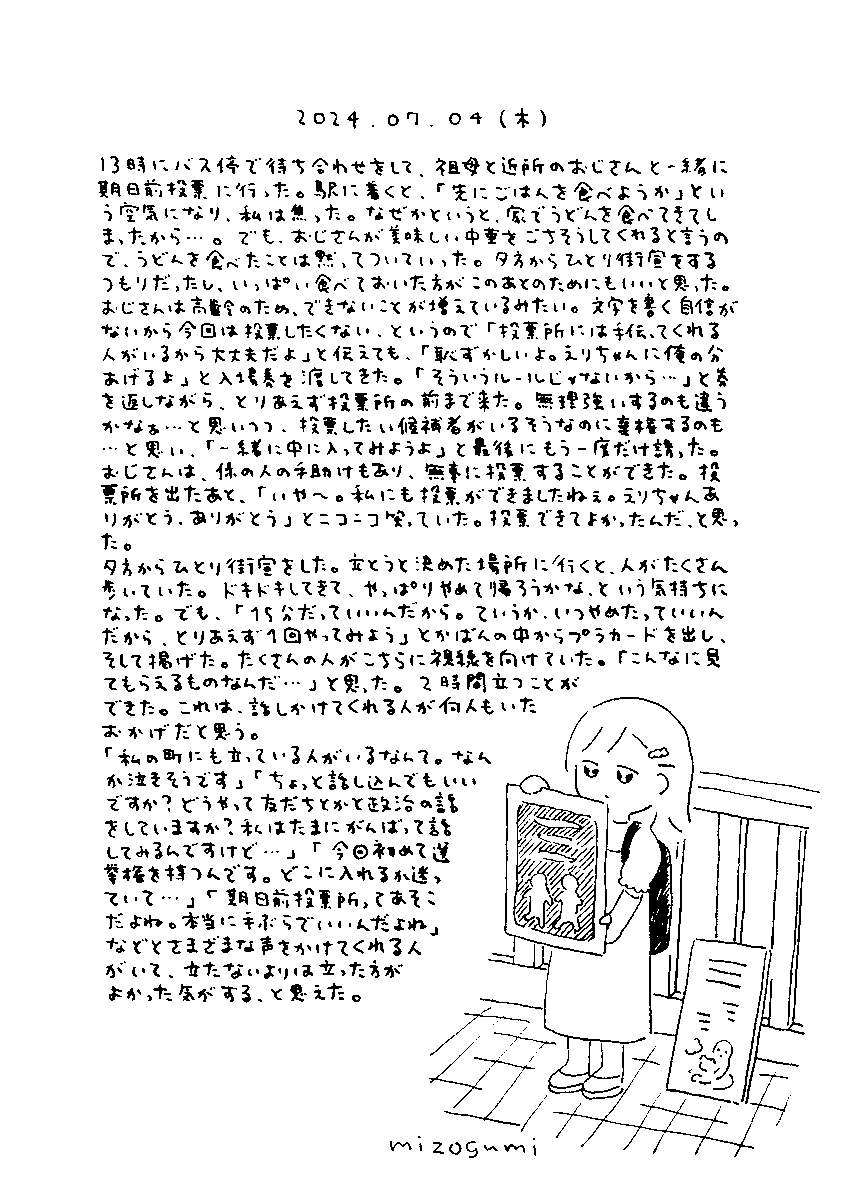 2024.07.04(木)
13時にバス停で待ち合わせをして、祖母と近所のおじさんと一緒に
期日前投票に行った。駅に着くと、「先にごはんを食べようか」とい
う空気になり、私は焦った。なぜかというと、家でうどんを食べてきてし
まったから…。でも、おじさんが美味しい中華をごちそうしてくれると言うの
で、うどんを食べたことは黙ってついていった。夕方からひとり街宣をする
つもりだったし、いっぱい食べておいた方がこのあとのためにもいいと思った。
おじさんは高齢のため、できないことが増えているみたい。文字を書く自信が
ないから今回は投票したくない、というので「投票所には手伝ってくれる
人がいるから大丈夫だよ」と伝えても、「恥ずかしいよ。えりちゃんに俺の分
あげるよ」と入場券を渡してきた。「そういうルールじゃないから…」と券
を返しながら、とりあえず投票所の前まで来た。無理強いするのも違う
かなぁ…と思いつつ、投票したい候補者がいるそうなのに棄権するのも
…と思い、「一緒に中に入ってみようよ」と最後にもう一度だけ誘った。
おじさんは、係の人の手助けもあり、無事に投票することができた。投
票所を出たあと、「いや〜。私にも投票ができましたねぇ。えりちゃんあ
りがとう、ありがとう」とニコニコ笑っていた。投票できてよかったんだ、と思っ
た。
夕方からひとり街宣をした。立とうと決めた場所に行くと、人がたくさん
歩いていた。ドキドキしてきて、やっぱりやめて帰ろうかな、という気持ちに
なった。でも、「15分だっていいんだから。ていうか、いつやめたっていいん
だから、とりあえず1回やってみよう」とかばんの中からプラカードを出し、
そして掲げた。たくさんの人がこちらに視線を向けていた。「こんなに見
てもらえるものなんだ…」と思った。2時間立つことが
できた。これは、話しかけてくれる人が何人もいた
おかげだと思う。
「私の町にも立っている人がいるなんて。なん
か泣きそうです」「ちょっと話し込んでもいい
ですか?どうやって友だちとかと政治の話
をしていますか?私はたまにがんばって話
してみるんですけど…」「今回初めて選
挙権を持つんです。どこに入れるか迷っ
ていて…」「期日前投票所ってあそこ
だよね。本当に手ぶらでいいんだよね」
などとさまざまな声をかけてくれる人
がいて、立たないよりは立った方が
よかった気がする、と思えた。
mizogumi